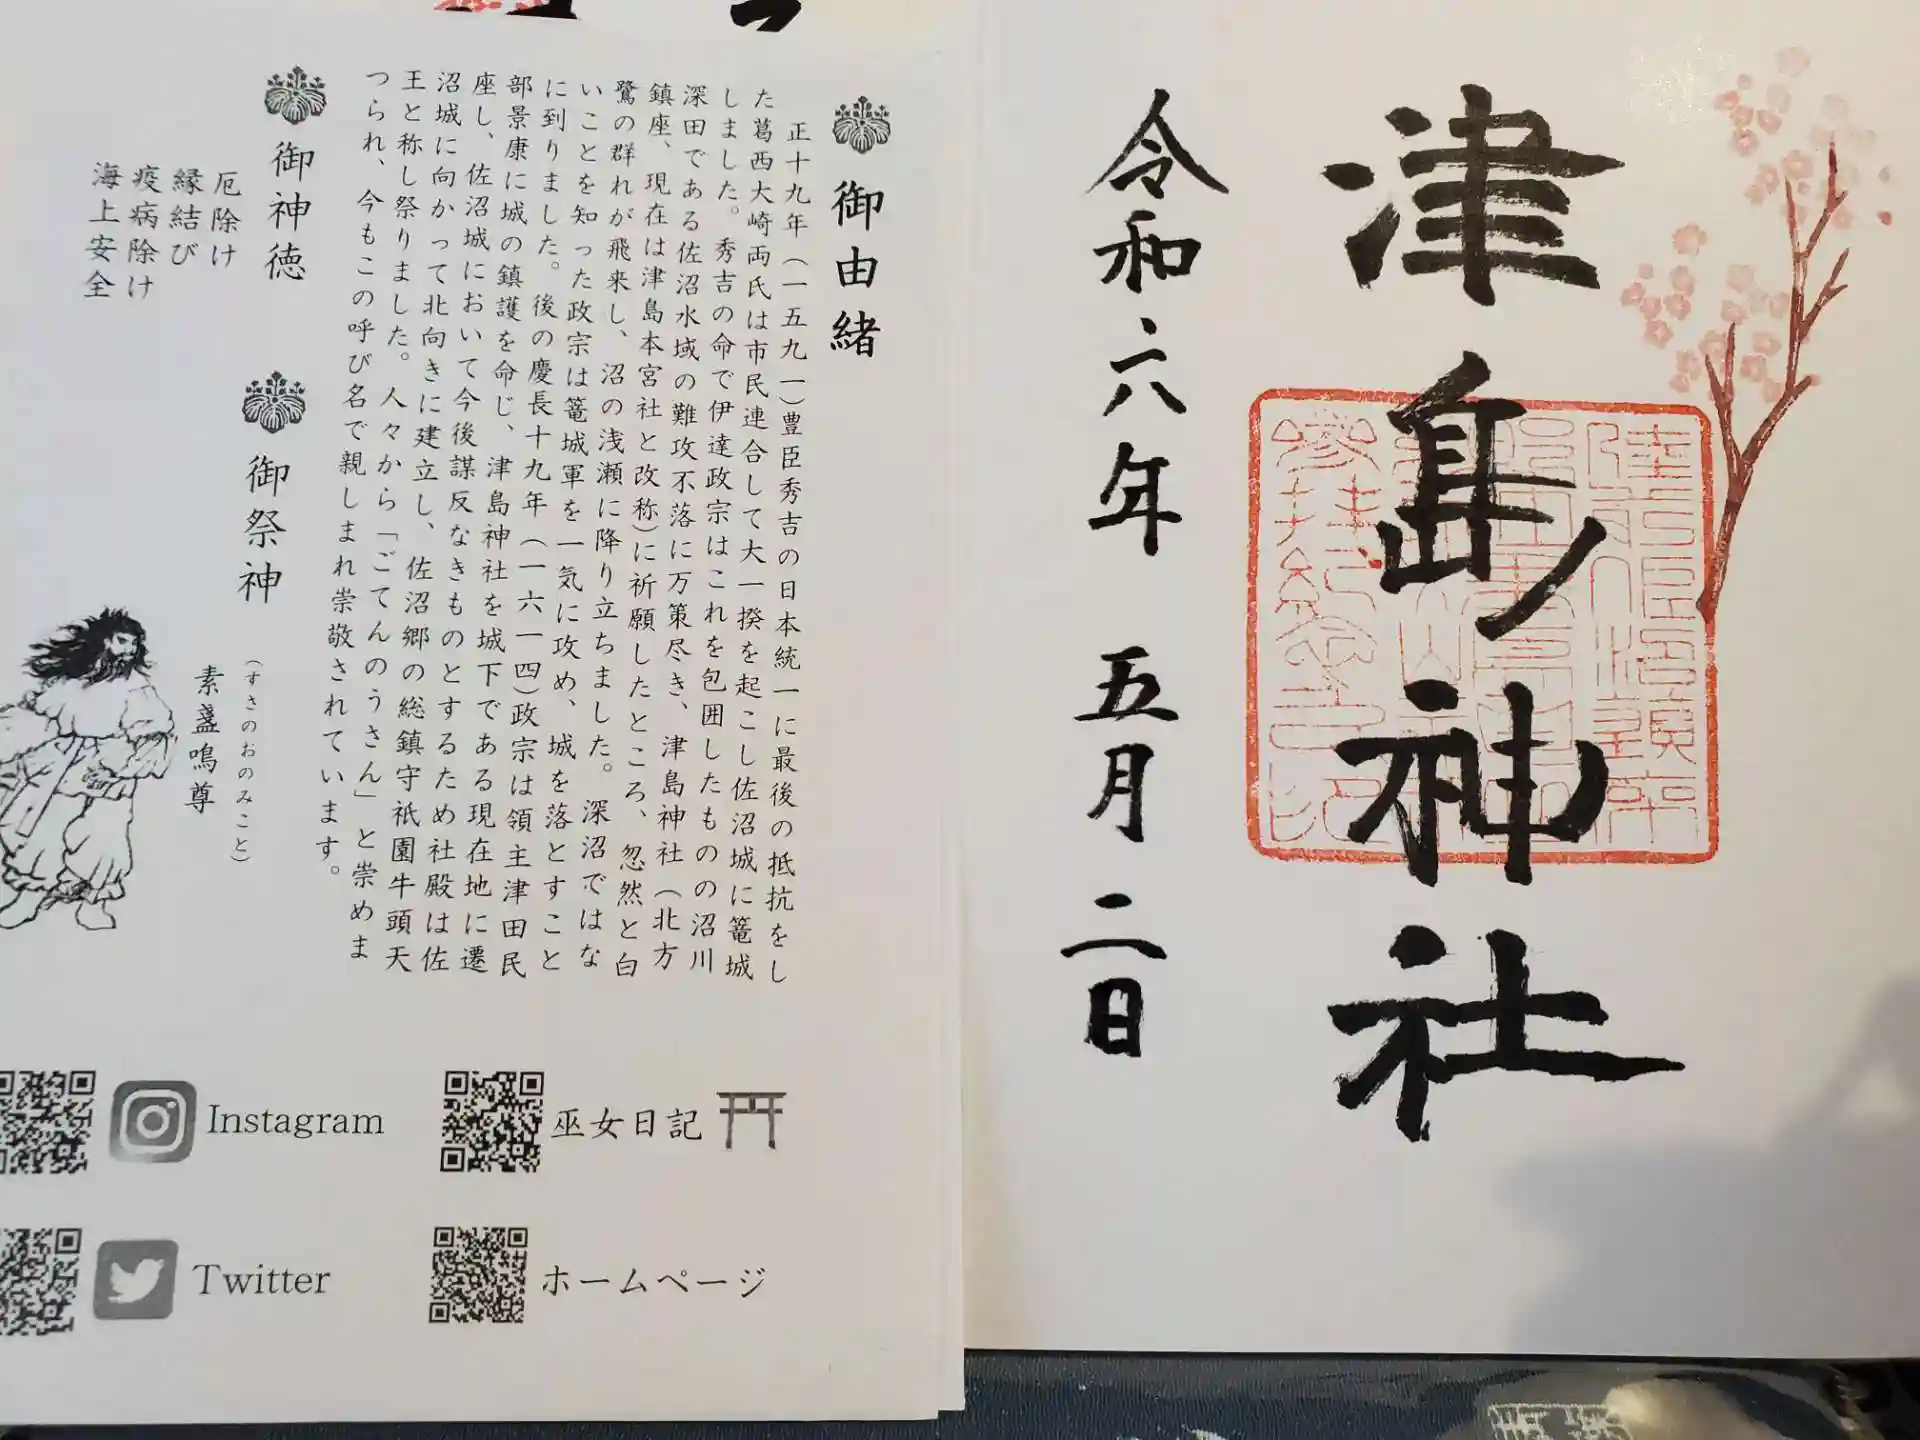 津島神社
令和六年 五月 二日
御由緒
正十九年(一五九一)豊臣秀吉の日本統一に最後の抵抗をし
た葛西大崎両氏は市民連合して大一揆を起こし佐沼城に篭城
しました。秀吉の命で伊達政宗はこれを包囲したものの沼川
深田である佐沼水域の難攻不落に万策尽き、津島神社(北方
鎮座、現在は津島本宮社と改称)に祈願したところ、忽然と白
鷺の群れが飛来し、沼の浅瀬に降り立ちました。深沼ではな
いことを知った政宗は篭城軍を一気に攻め、城を落とすこと
に到りました。後の慶長十九年(一六一四)政宗は領主津田民
部景康に城の鎮護を命じ、津島神社を城下である現在地に遷
座し、佐沼城において今後謀反なきものとするため社殿は佐
沼城に向かって北向きに建立し、佐沼郷の総鎮守祇園牛頭天
王と称し祭りました。人々から「ごてんのうさん」と崇めま
つられ、今もこの呼び名で親しまれ崇敬されています。
御神徳
厄除け
縁結び
疫病除け
海上安全
御祭神
(すさのおのみこと)
素盞鳴尊
巫女日記
Instagram
ホームページ
Twitter